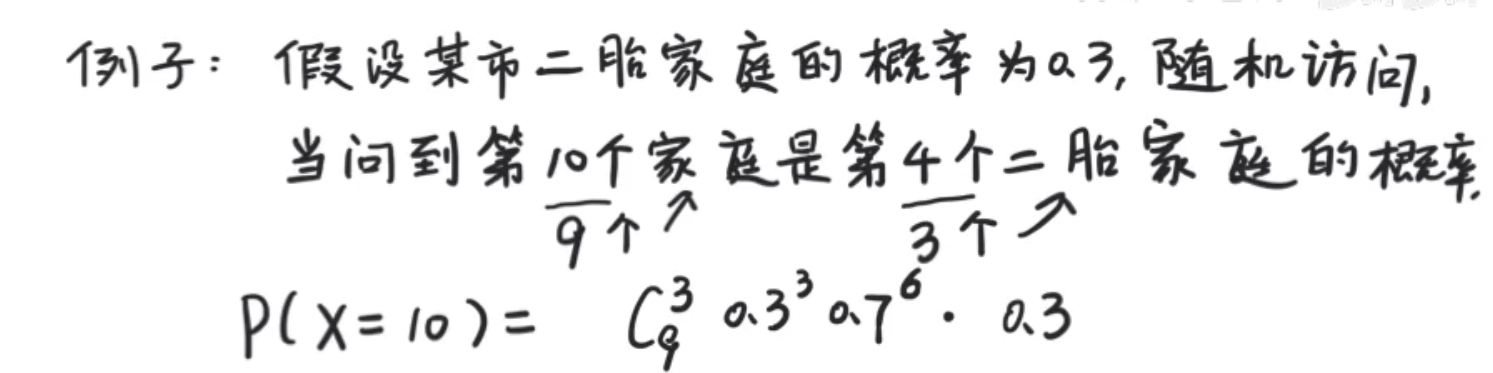 例子: 假设某市二胎家庭的概率为0.3, 随机访问,
当问到第10个家庭是第4个二胎家庭的概率.
9个↗ 3个↗
P(X=10)= C₉³ 0.3³ 0.7⁶ · 0.3